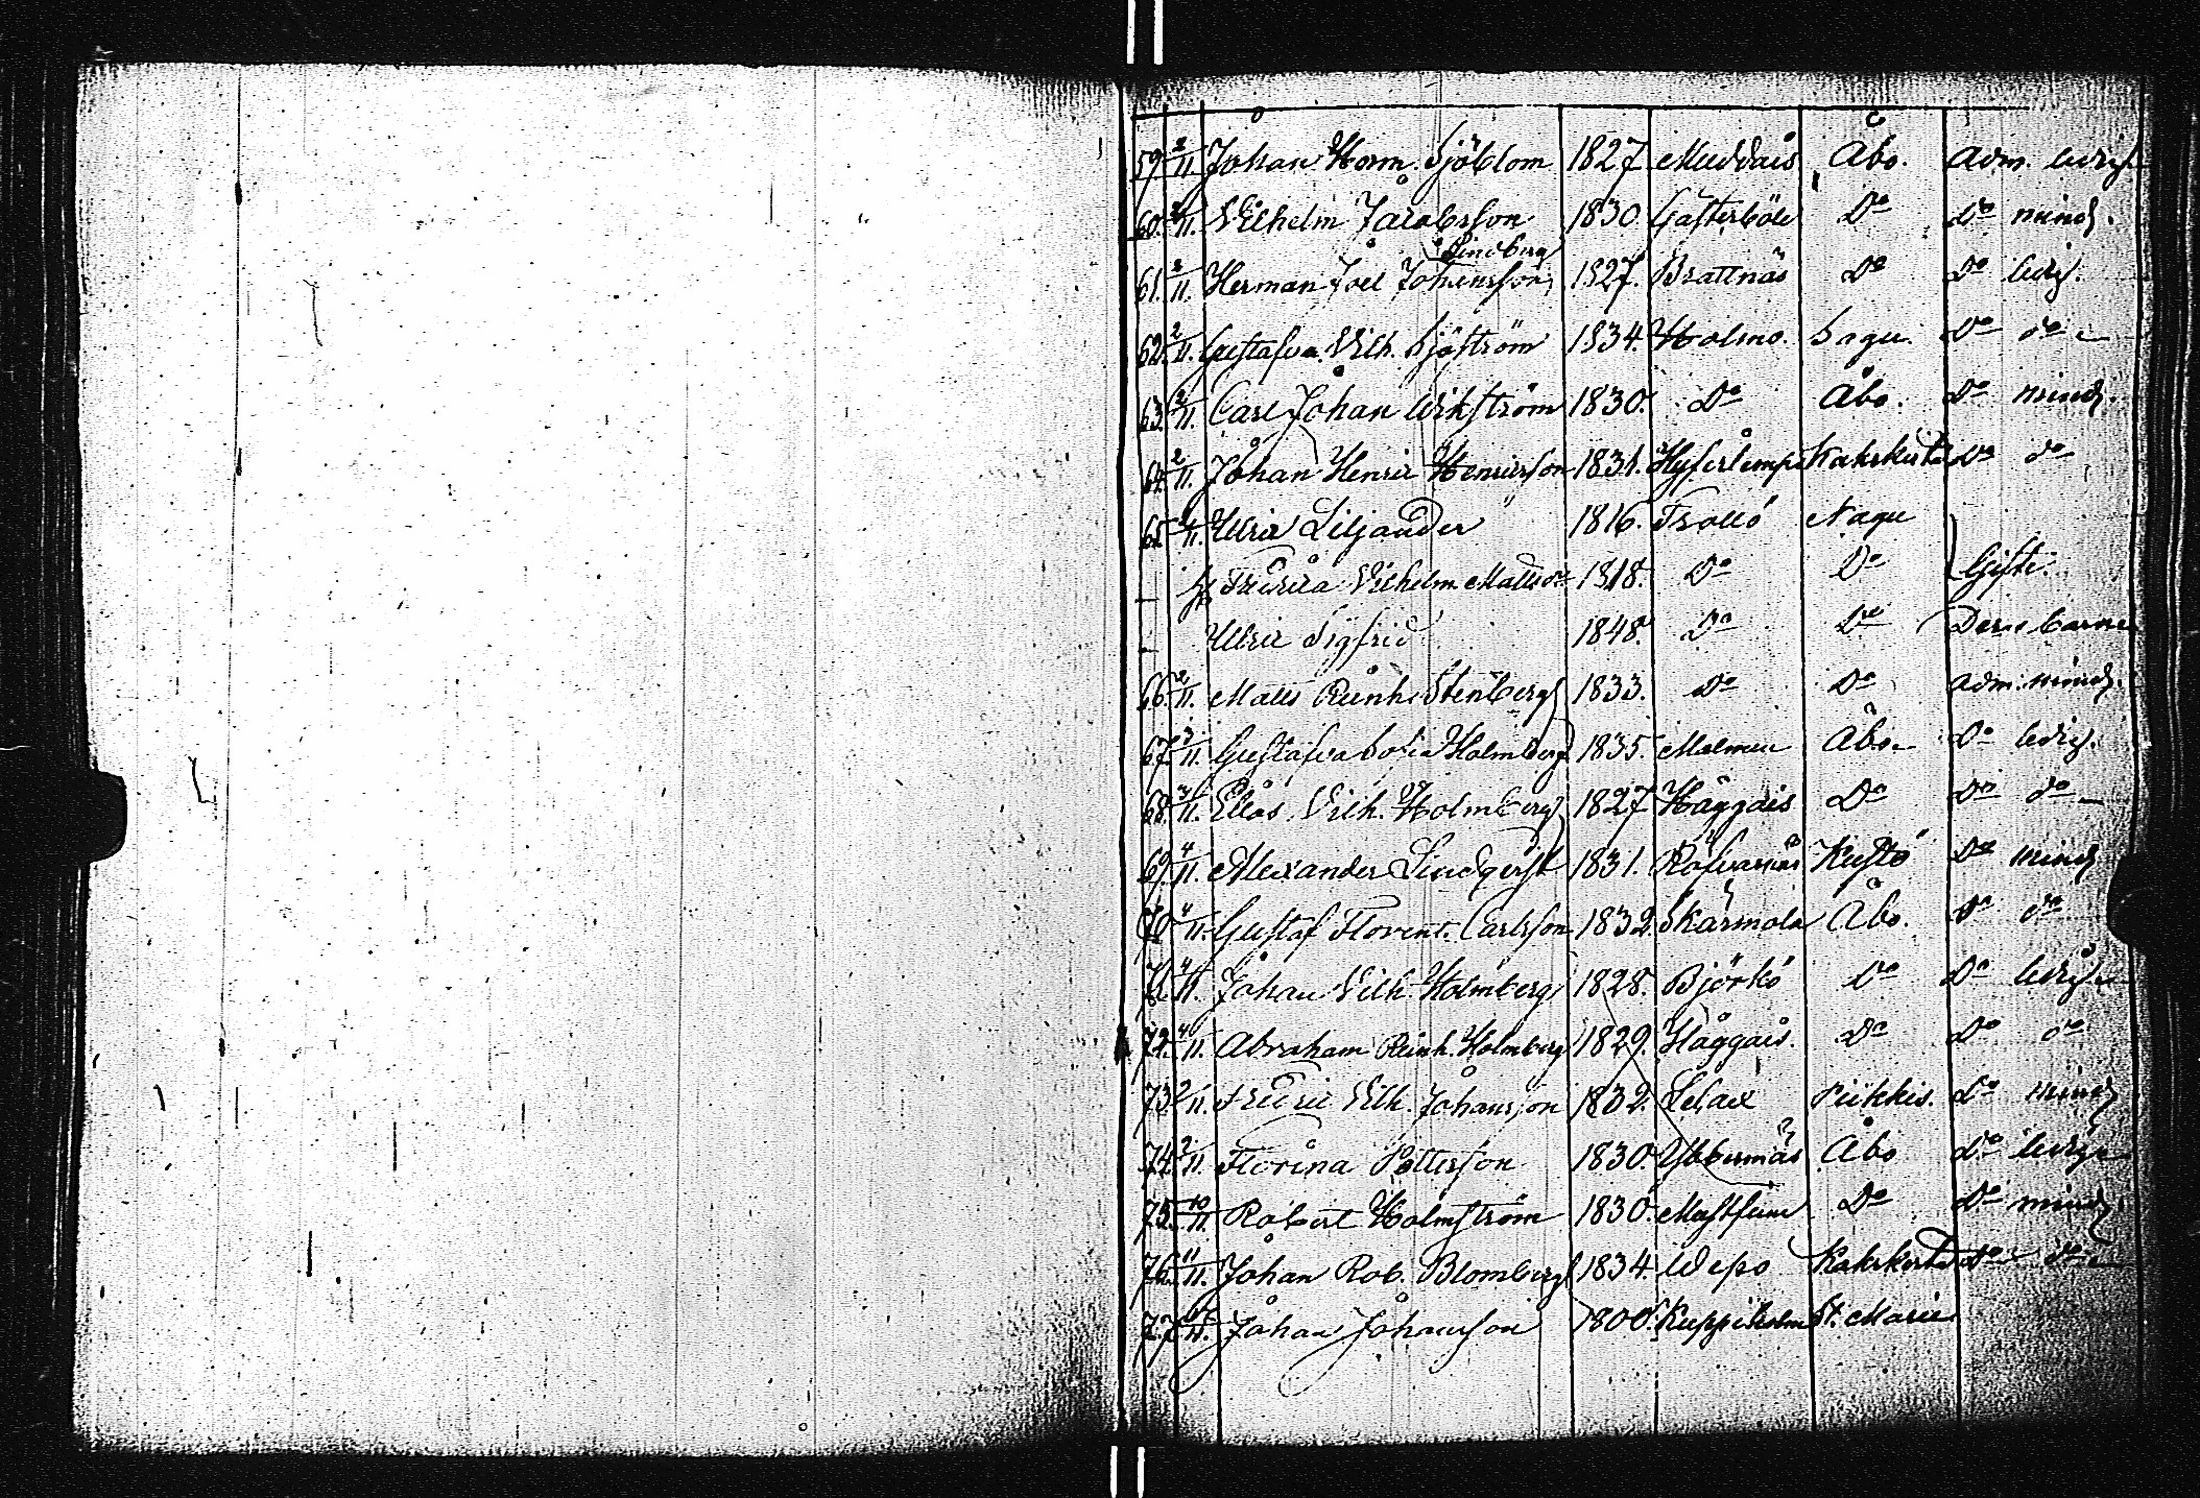 59. 2/11. Johan Herm. Sjöblom 1827 Muddais Åbo. Adm. ledig
60. 2/11. Vilhelm Jacobsson 1830. Gästerböle Do do mind.
Lindberg
61. 2/11. Herman Joel Johansson 1827. Brattnäs Do Do ledig.
62. 2/11. Gustafva Vilh. Sjöström 1834. Holmo. Sagu. Do do
63. 2/11. Carl Johan Wikström 1830. Do Åbo. Do mind.
64. 2/11. Johan Henric Henricsson 1831. Kakskerta do do
65. /11. Ulric Liljander 1816. Trollö Nagu
H Fredrica Vilhelm. Matts dr 1818. Do Do Gifte.
Ulric Sigfrid 1848. Do Do Deras barn
66. 2/11. Matts Reinh. Stenberg 1833. Do Do Adm. mind.
67. 3/11. Gustafva Sofia Holmberg 1835. Malmen Åbo Do ledig.
68. 3/11. Elias Vilh. Holmberg 1827 Häggais Do Do do
69. 4/11. Alexander Lindqvist 1831. Räfvarnäs Kustö Do mind
70. 4/11. Gustaf Florent. Carlsson 1832. Skärmola Åbo. Do do
71. 4/11. Johan Vilh. Holmberg 1828. Björkö Do Do ledig
72. 4/11. Abraham Reinh. Holmberg 1829. Häggais. Do Do do
73. /11. Fredric Vilh. Johansson 1832. Lelax Piikkis. Do mind
74. /11. Florina Pettersson 1830. Ybbernäs Åbo Do ledig
75. 10/11. Robert Holmström 1830. Do Do mind.
76. 11/11. Johan Rob. Blomberg 1834. Wepo Kakskerta do do
77. /11. Johan Johansson 1800. Kuppisholm St. Marie